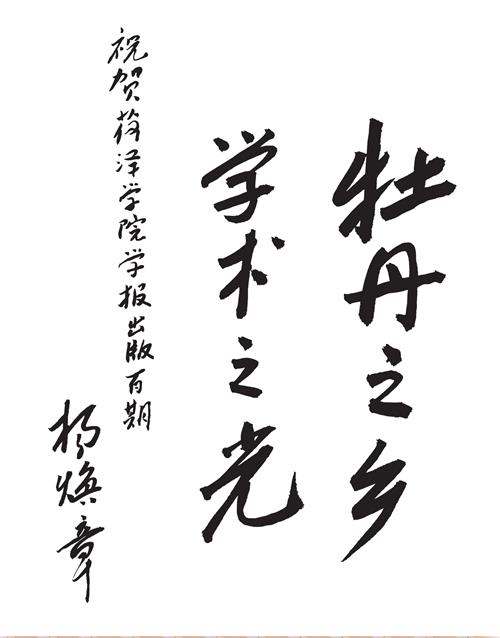 牡丹之乡
学术之光
祝贺菏泽学院学报出版百期
杨焕章